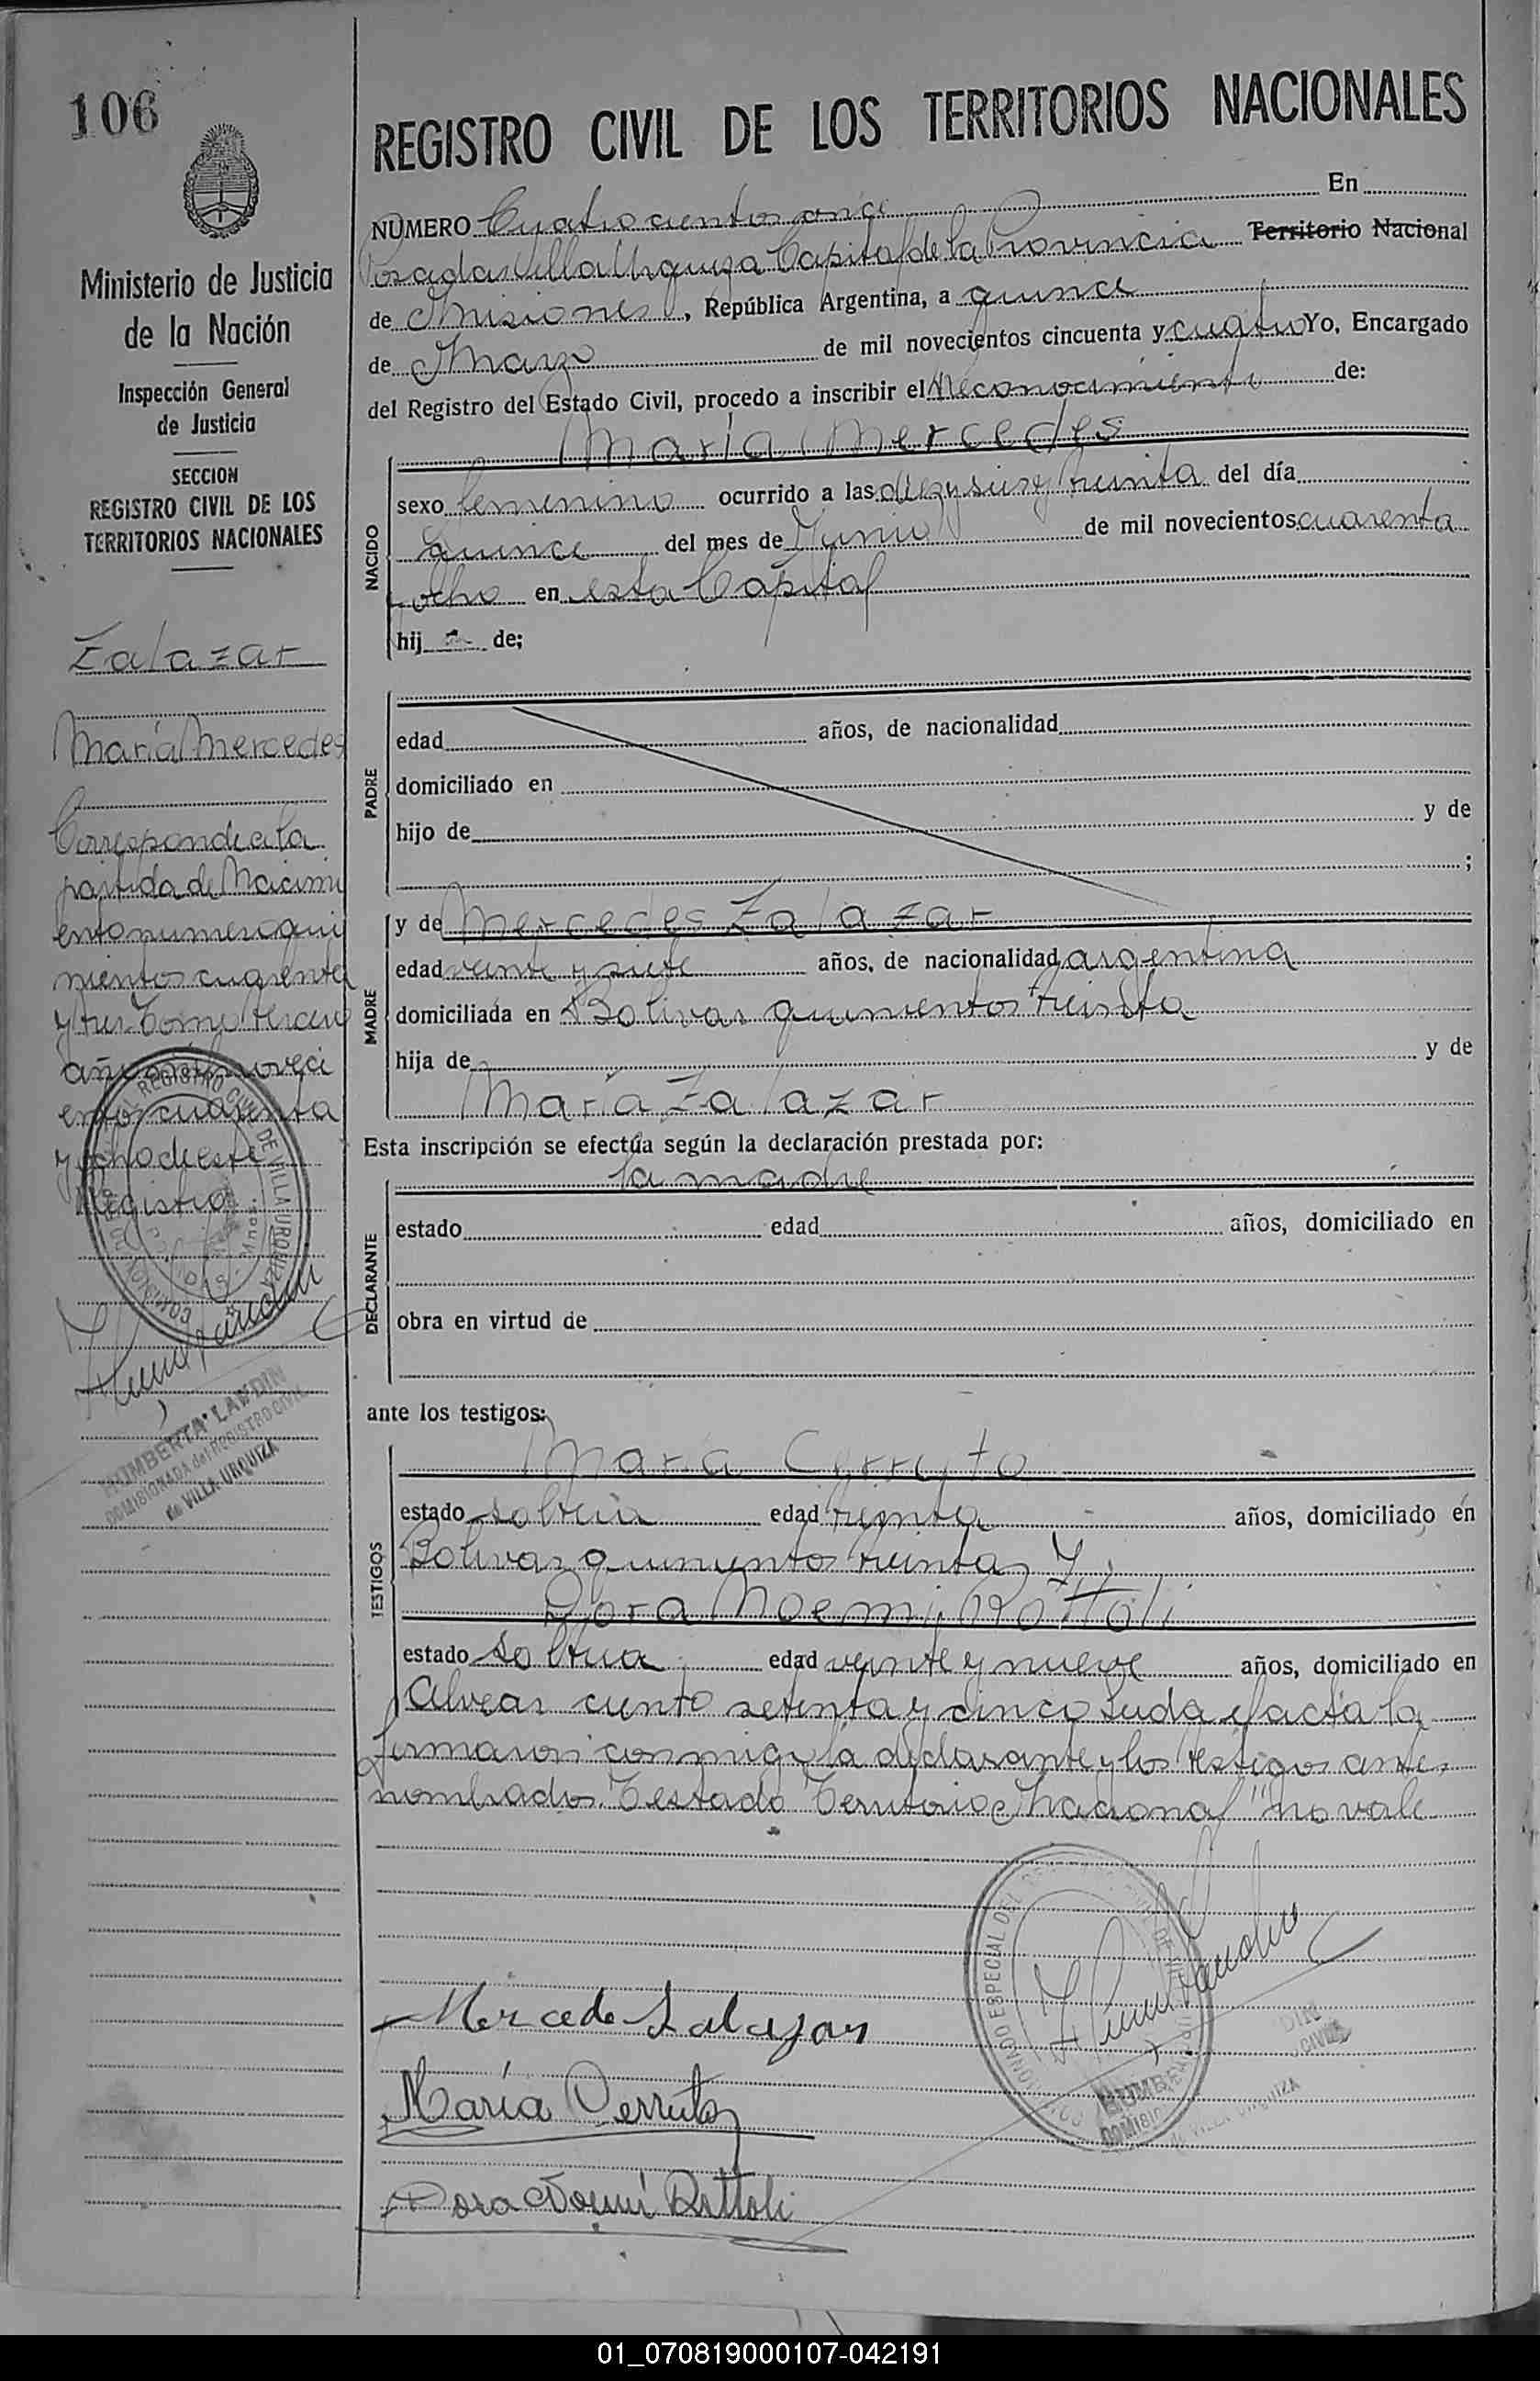 106
Ministerio de Justicia
de la Nación
Inspección General
de Justicia
SECCION
REGISTRO CIVIL DE LOS
TERRITORIOS NACIONALES
Zalazar
María Mercedes
Corresponde a la
partida de Nacimi
ento numero qui
nientos cuarenta
y tres Tomo tercero
año mil noveci
entos cuarenta
y ocho de este
Registro
HUMBERTA LANDIN
COMISIONADA del REGISTRO CIVIL
de VILLA URQUIZA
REGISTRO CIVIL DE LOS TERRITORIOS NACIONALES
NUMERO Cuatrocientos once En
Posadas Villa Urquiza Capital de la Provincia Territorio Nacional
de Misiones, República Argentina, a quince
de Marzo de mil novecientos cincuenta y cuatro Yo, Encargado
del Registro del Estado Civil, procedo a inscribir el Reconocimiento de:
María Mercedes
NACIDO
sexo femenino ocurrido a las diez y seis y treinta del día
quince del mes de Junio de mil novecientos cuarenta
y ocho en esta Capital
hij a de;
PADRE
edad años, de nacionalidad
domiciliado en
hijo de y de
;
MADRE
y de Mercedes Zalazar
edad veinte y siete años, de nacionalidad argentina
domiciliada en Bolivar quinientos treinta
hija de y de
María Zalazar
Esta inscripción se efectúa según la declaración prestada por:
la madre
DECLARANTE
estado edad años, domiciliado en
obra en virtud de
ante los testigos:
TESTIGOS
María Cerruto
estado soltera edad treinta años, domiciliado en
Bolivar quinientos treinta y
Dora Noemi Rottoli
estado soltera edad veinte y nueve años, domiciliado en
Alvear ciento setenta y cinco Leida el acta la
firmaron conmigo la declarante y los testigos antes
nombrados. Testado "Territorio Nacional" no vale
Mercede Salazar
María Cerruto
Dora Noemí Rottoli
01_070819000107-042191